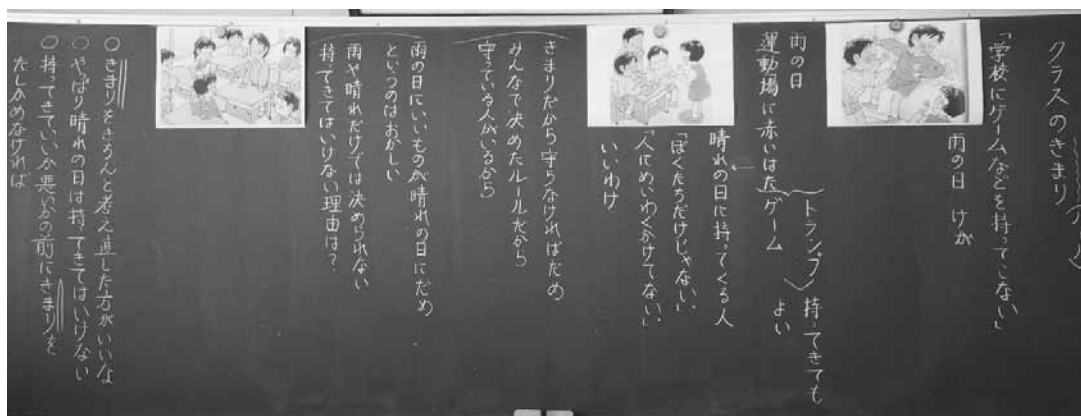 クラスのきまり
「学校にゲームなどを持ってこない」
雨の日 けが
トランプ
ゲーム
持ってきても
よい
雨の日
運動場に赤いはた
晴れの日に持ってくる人
「ぼくたちだけじゃない」
「人にめいわくかけてない」
いいわけ
きまりだから守らなければだめ
みんなで決めたルールだから
守っている人がいるから
雨の日にいいものが晴れの日にだめ
というのはおかしい
雨や晴れだけでは決められない
持てきてはいけない理由は？
○きまりをきちんと考え直した方がいいな
○やぱり晴れの日は持てきてはいけない
○持ってきていいか悪いかの前にきまりを
たしかめなければ